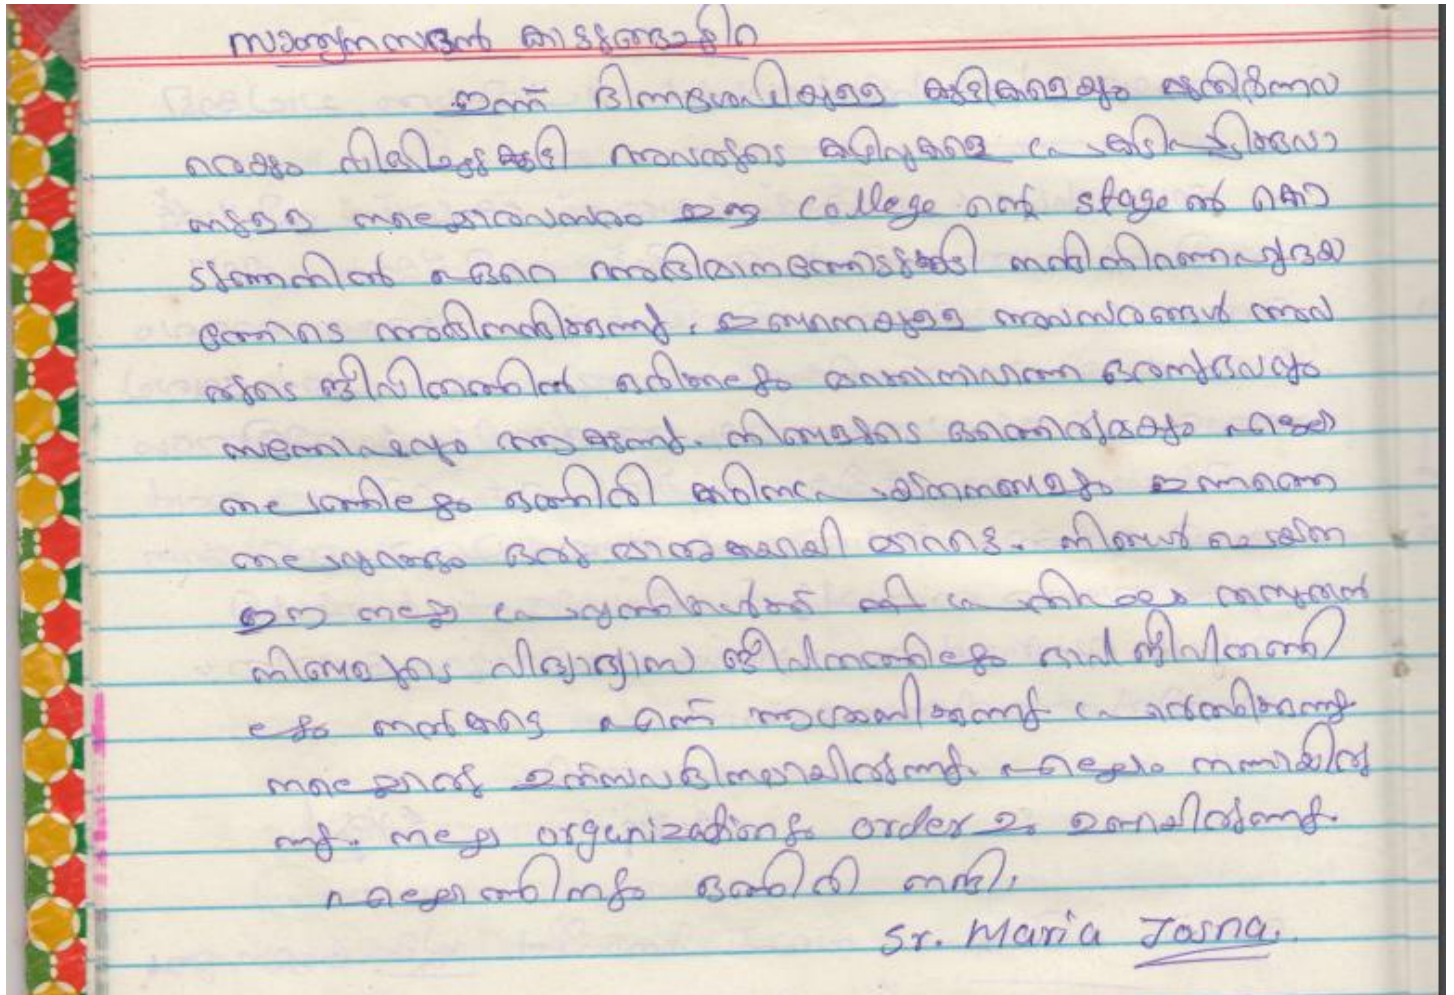 സാന്ത്വനസദൻ കാടുങ്ങാച്ചിറ
ഇന്ന് ഭിന്നശേഷിയുള്ള കുട്ടികളെയും മുതിർന്നവ
രെയും വിളിച്ചുകൂട്ടി അവരുടെ കഴിവുകളെ പ്രകടിപ്പിക്കുവാ
നുള്ള നല്ലൊരവസരം ഈ College ന്റെ stage ൽ കൊ
ടുത്തതിൽ ഏറെ അഭിമാനത്തോടുകൂടി നന്ദിനിറഞ്ഞഹൃദയ
ത്തോടെ അഭിനന്ദിക്കുന്നു. ഇങ്ങനെയുള്ള അവസരങ്ങൾ അവ
രുടെ ജീവിതത്തിൽ ഒരിക്കലും മറക്കാനാവാത്ത ഒരനുഭവവും
സന്തോഷവും ആകുന്നു. നിങ്ങളുടെ ഒത്തൊരുമയും എല്ലാ
തലത്തിലും ഒത്തിരി കഠിനപ്രയത്നങ്ങളും ഇന്നത്തെ
തലമുറയ്ക്കും ഒരു മാതൃകയായി മാറട്ടെ. നിങ്ങൾ ചെയ്ത
ഈ നല്ല പ്രവൃത്തികൾക്ക് പ്രതിഫലം തമ്പുരാൻ
നിങ്ങളുടെ വിദ്യാഭ്യാസ ജീവിതത്തിലും ഭാവി ജീവിതത്തി
ലും നൽകട്ടെ എന്ന് ആശംസിക്കുന്നു പ്രാർത്ഥിക്കുന്നു
നല്ലൊരു ഉത്സവദിനമായിരുന്നു. എല്ലാം നന്നായിരു
ന്നു. നല്ല organization ഉം order ഉം ഉണ്ടായിരുന്നു.
എല്ലാത്തിനും ഒത്തിരി നന്ദി.
Sr. Maria Josna.